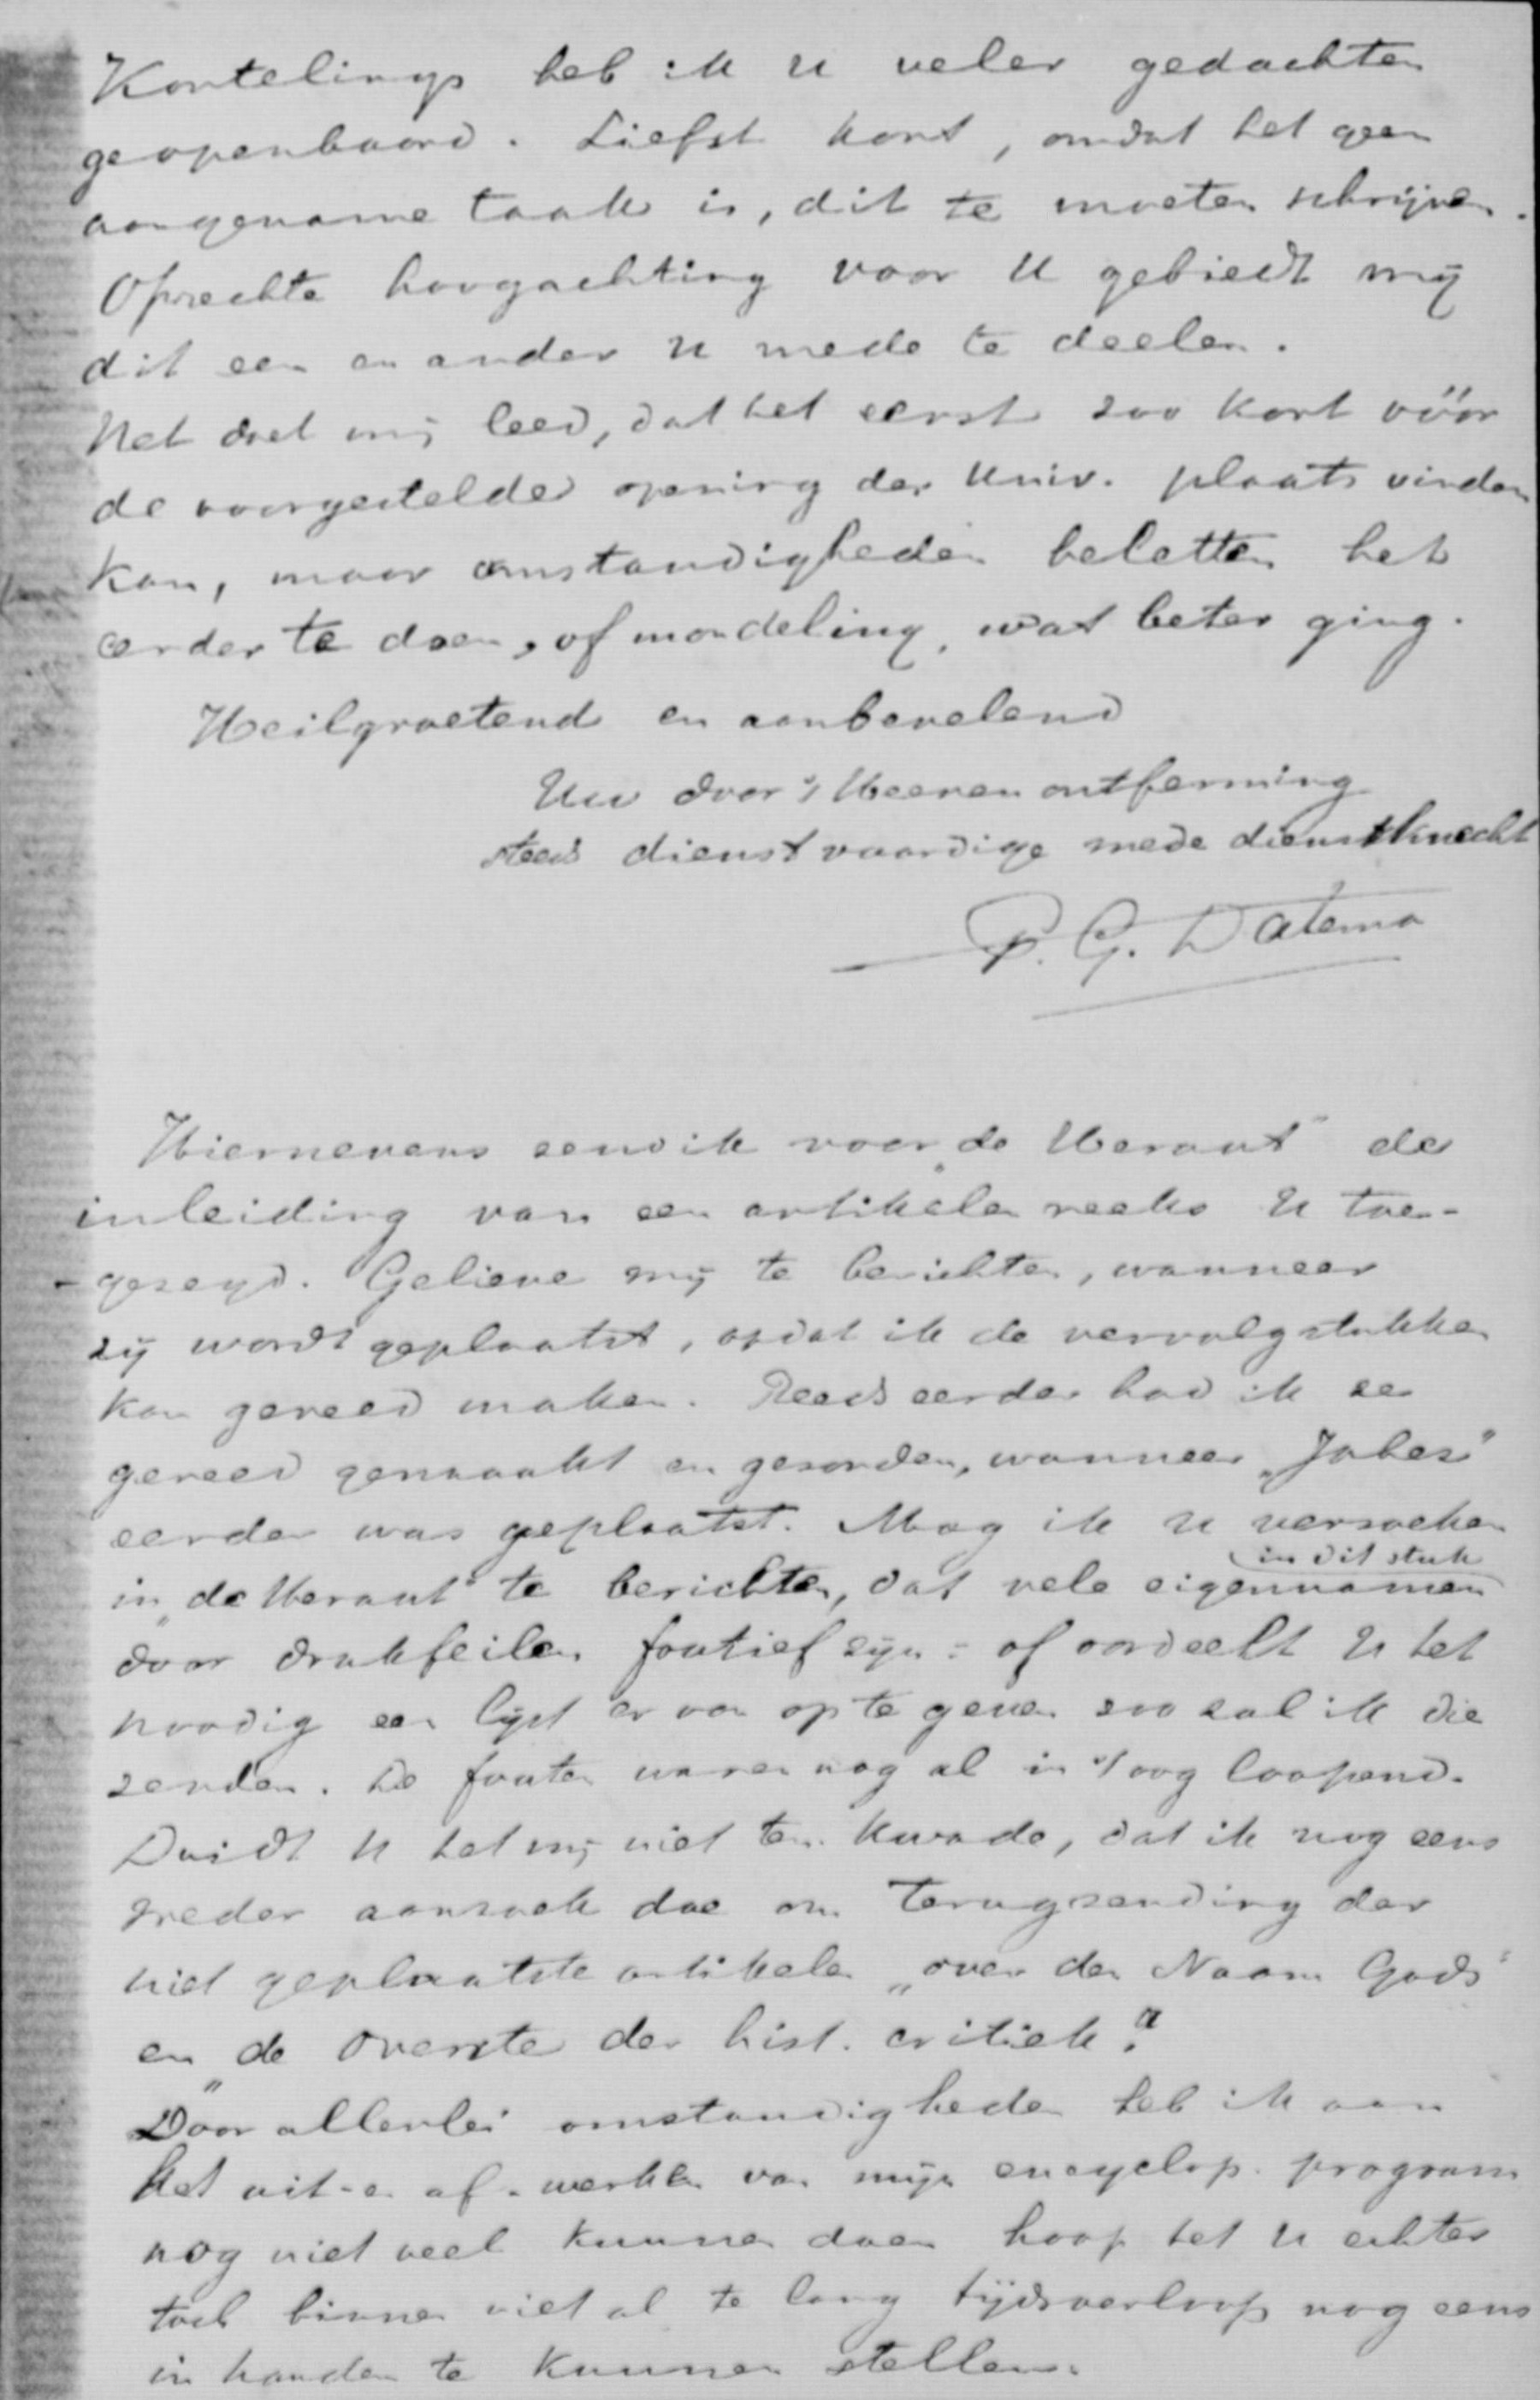 Kortelings heb ik U veler gedachten
geopenbaard. Liefst kort, omdat het geen
aangename taak is, dit te moeten schrijven.
Oprechte hoogachting voor U gebiedt mij
dit een en ander U mede te deelen.
Het doet mij leed, dat het eerst zoo kort vóór
de voorgestelde opening der Univ. plaats vinden
kan, maar omstandigheden beletten het
eerder te doen, of mondeling, wat beter ging.
Heilgroetend en aanbevelend
Uw door 's Heeren ontferming
steeds dienstvaardige mede dienstknecht
P. G. Datema
Hiernevens zend ik voor „de Heraut" de
inleiding van een artikelen reeks U toe-
-gezegd. Gelieve mij te berichten, wanneer
zij wordt geplaatst, opdat ik de vervolgstukken
kan gereed maken. Reeds eerder had ik ze
gereed gemaakt en gezonden, wanneer „Jabes"
eerder was geplaatst. Mag ik U verzoeken
in dit stuk
in „de Heraut" te berichten, dat vele eigennamen
door drukfeilen foutief zijn: of oordeelt U het
noodig een lijst er van op te geven zoo zal ik die
zenden. De fouten waren nog al in 't oog loopend.
Duidt U het mij niet ten kwade, dat ik nog eens
weder aanzoek doe om terugzending der
niet geplaatste artikelen „over den Naam Gods"
en „de Overste der hist. critiek".
Door allerlei omstandigheden heb ik aan
het uit- en af-werken van mijn encyclop. program
nog niet veel kunnen doen hoop het U echter
toch binnen niet al te lang tijdsverloop nog eens
in handen te kunnen stellen.